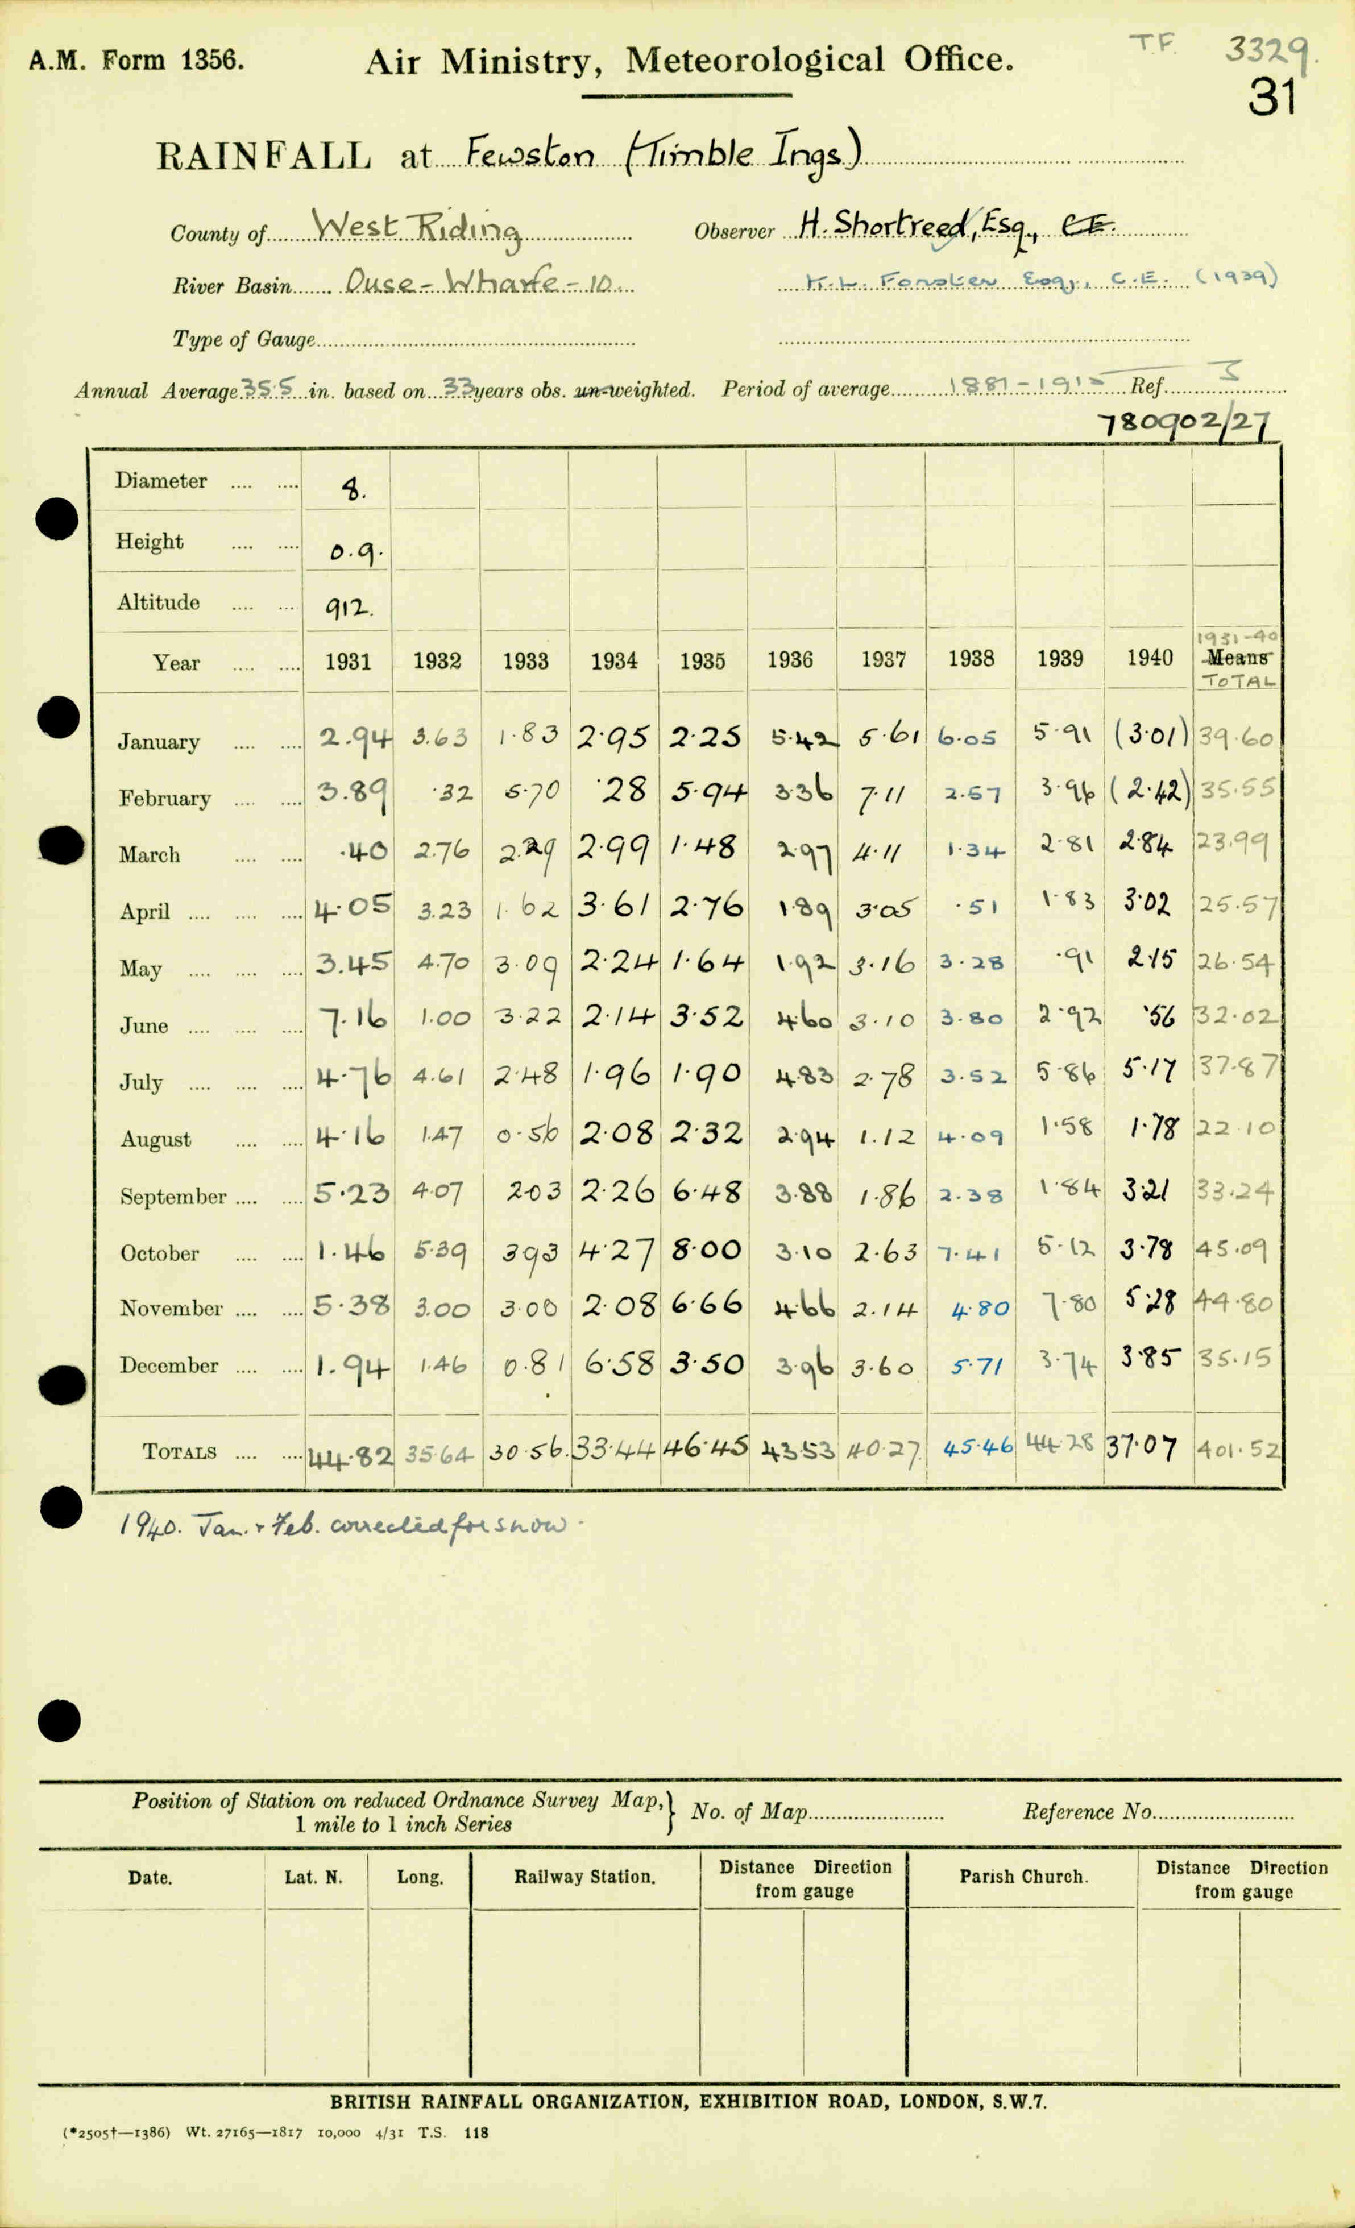 A.M. Form 1356. Air Ministry, Meteorological Office. T.F. 3329.
31
RAINFALL at Fewston (Timble Ings)
County of West Riding Observer H. Shortreed, Esq., C.E.
River Basin Ouse - Wharfe - 10 Esq., C.E. (1939)
Type of Gauge
Annual Average 35.5 in. based on 33 years obs. un-weighted. Period of average 1881-1915 Ref. J
780902/27
Diameter 8.
Height 0.9.
Altitude 912.
1931-40
Year 1931 1932 1933 1934 1935 1936 1937 1938 1939 1940 Means
TOTAL
January 2.94 3.63 1.83 2.95 2.25 5.42 5.61 6.05 5.91 (3.01) 39.60
February 3.89 .32 5.70 .28 5.94 3.36 7.11 2.57 3.96 (2.42) 35.55
March .40 2.76 2.29 2.99 1.48 2.97 4.11 1.34 2.81 2.84 23.99
April 4.05 3.23 1.62 3.61 2.76 1.89 3.05 .51 1.83 3.02 25.57
May 3.45 4.70 3.09 2.24 1.64 1.92 3.16 3.28 .91 2.15 26.54
June 7.16 1.00 3.22 2.14 3.52 4.60 3.10 3.80 2.92 .56 32.02
July 4.76 4.61 2.48 1.96 1.90 4.83 2.78 3.52 5.86 5.17 37.87
August 4.16 1.47 0.56 2.08 2.32 2.94 1.12 4.09 1.58 1.78 22.10
September 5.23 4.07 2.03 2.26 6.48 3.88 1.86 2.38 1.84 3.21 33.24
October 1.46 5.39 3.93 4.27 8.00 3.10 2.63 7.41 5.12 3.78 45.09
November 5.38 3.00 3.00 2.08 6.66 4.66 2.14 4.80 7.80 5.28 44.80
December 1.94 1.46 0.81 6.58 3.50 3.96 3.60 5.71 3.74 3.85 35.15
TOTALS 44.82 35.64 30.56 33.44 46.45 43.53 40.27 45.46 44.28 37.07 401.52
1940. Jan. + Feb. corrected for snow.
Position of Station on reduced Ordnance Survey Map, } No. of Map Reference No.
1 mile to 1 inch Series
Date. Lat. N. Long. Railway Station. Distance Direction from gauge Parish Church. Distance Direction from gauge
BRITISH RAINFALL ORGANIZATION, EXHIBITION ROAD, LONDON, S.W.7.
(*2505†—1386) Wt. 27165—1817 10,000 4/31 T.S. 118